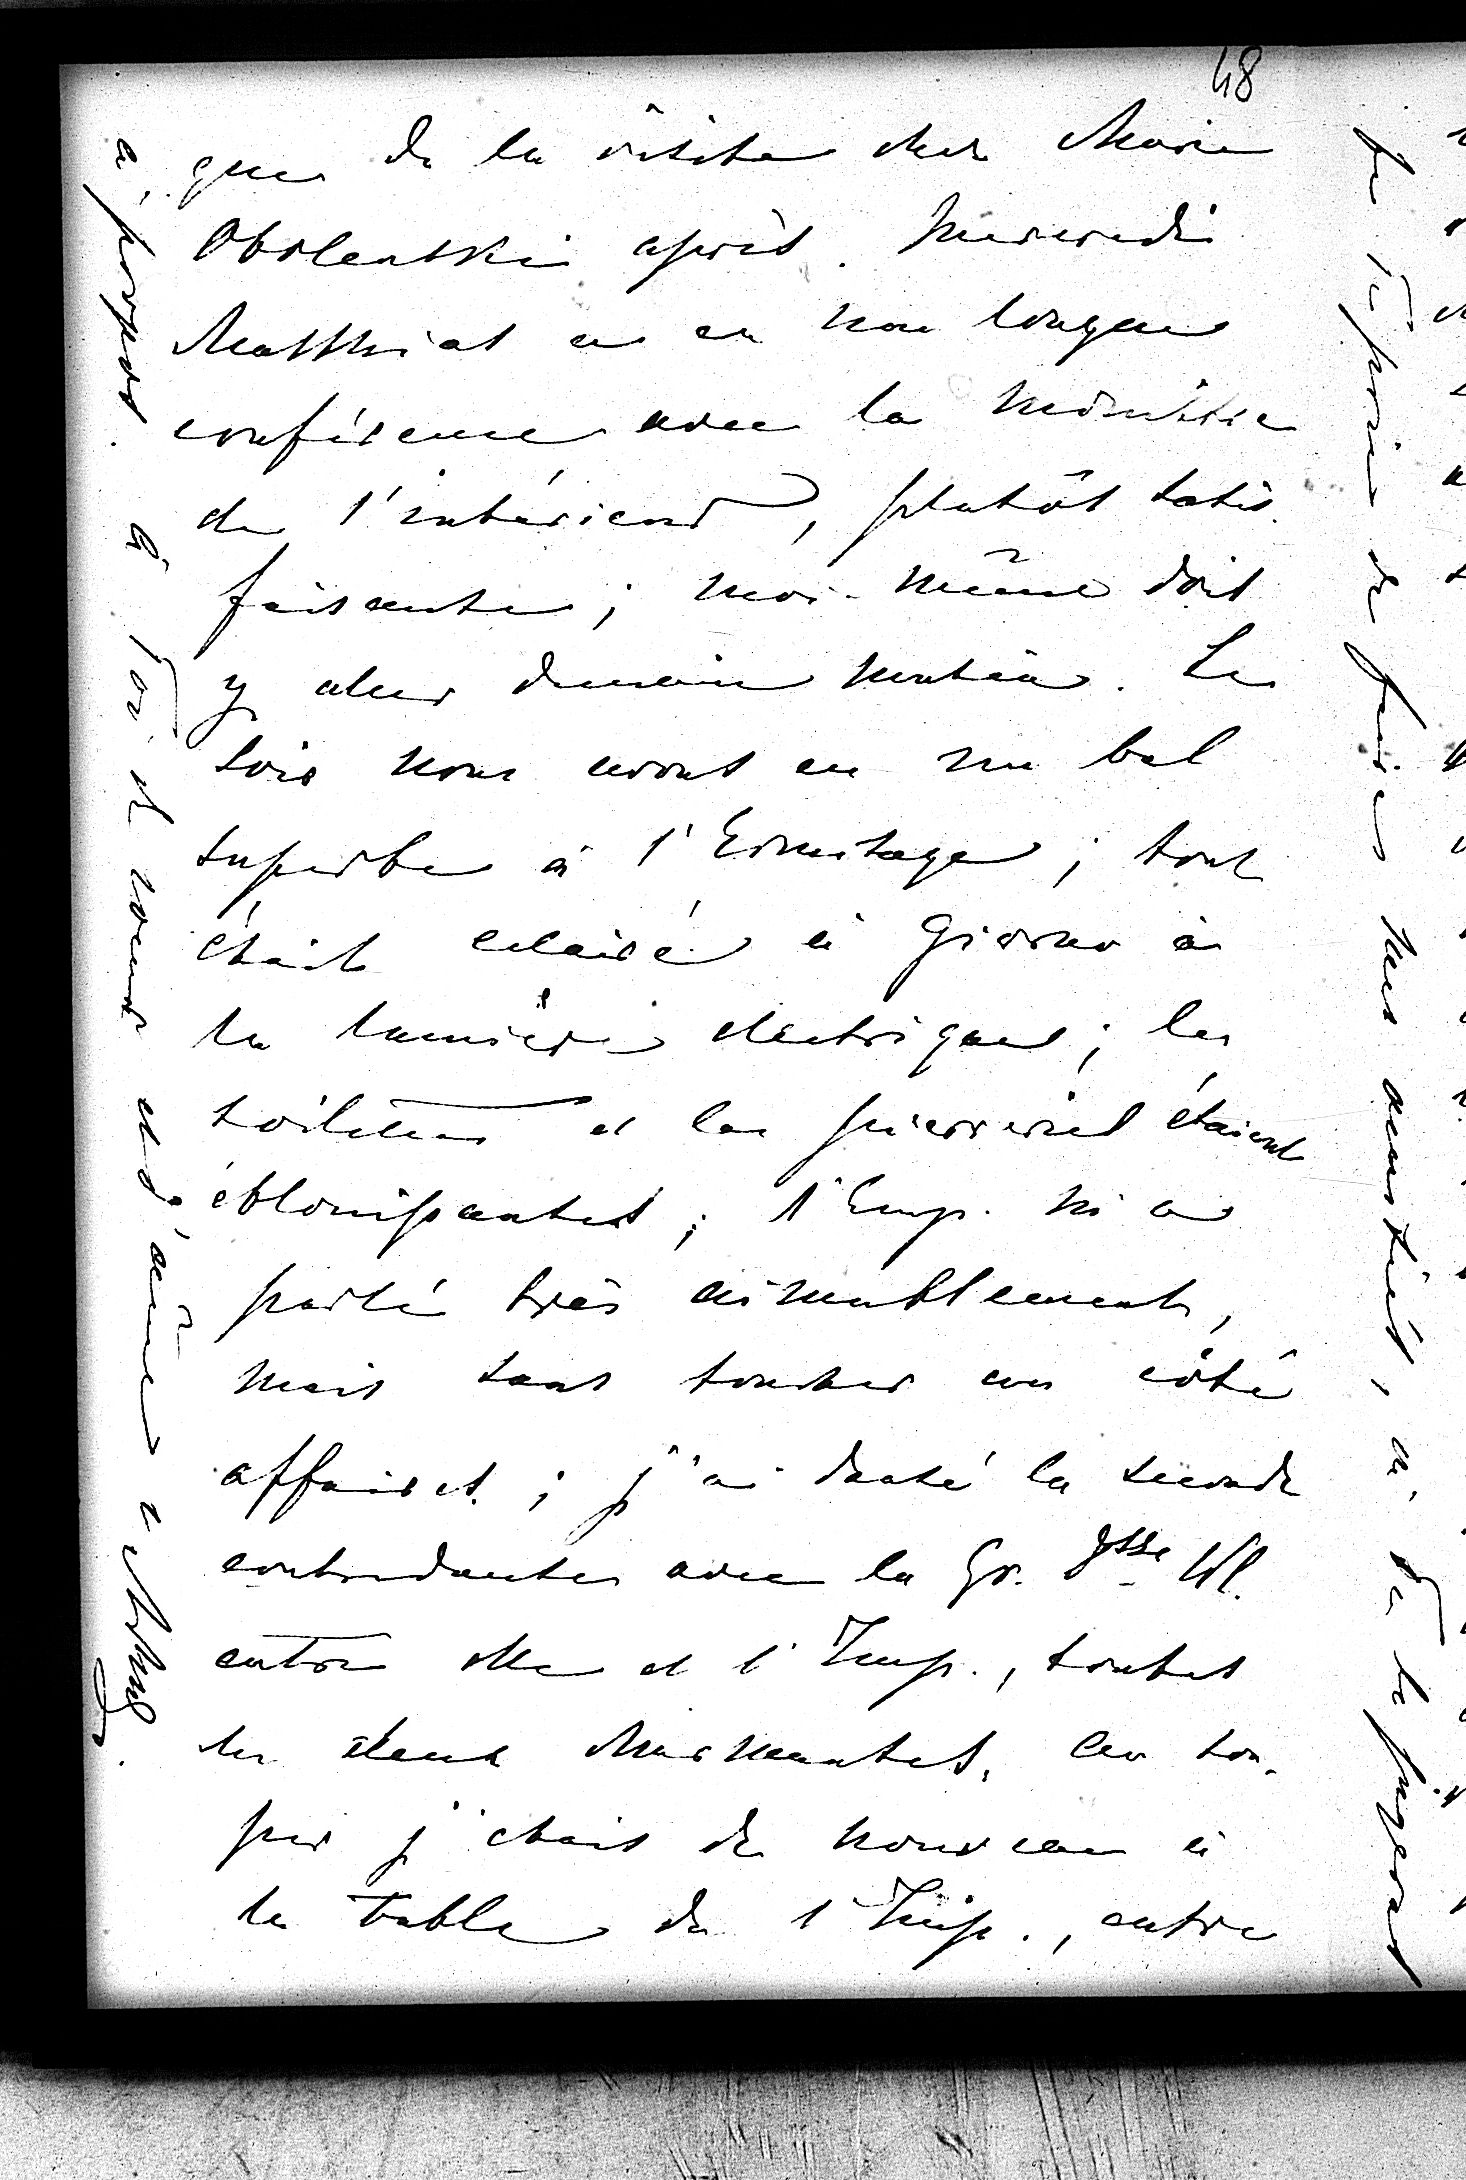 48
que de la visite chez Marie
Obolenski après. Mercredi
Matthias a eu une longue
conférence avec le ministre
de l'intérieur, plutôt satis-
faisante; moi-même dois
y aller demain matin. Le
soir nous avons eu un bal
superbe à l'Ermitage; tout
était eclairé à Giorno à
la lumière électrique; les
toilettes et les pierreries étaient
éblouissantes; l'Emp. m'a
parlé très aimablement,
mais sans toucher au côté
affaires; j'ai dansé la seconde
contredanse avec la Gr. Dsse Wl.
entre elle et l'Imp., toutes
les deux charmantes. Au sou-
per j'étais de nouveau à
la table de l'Imp., entre
à propos. à Toi de coeur et d'âme
de Te prier de faire mes amitiés, où Tu le jugeras